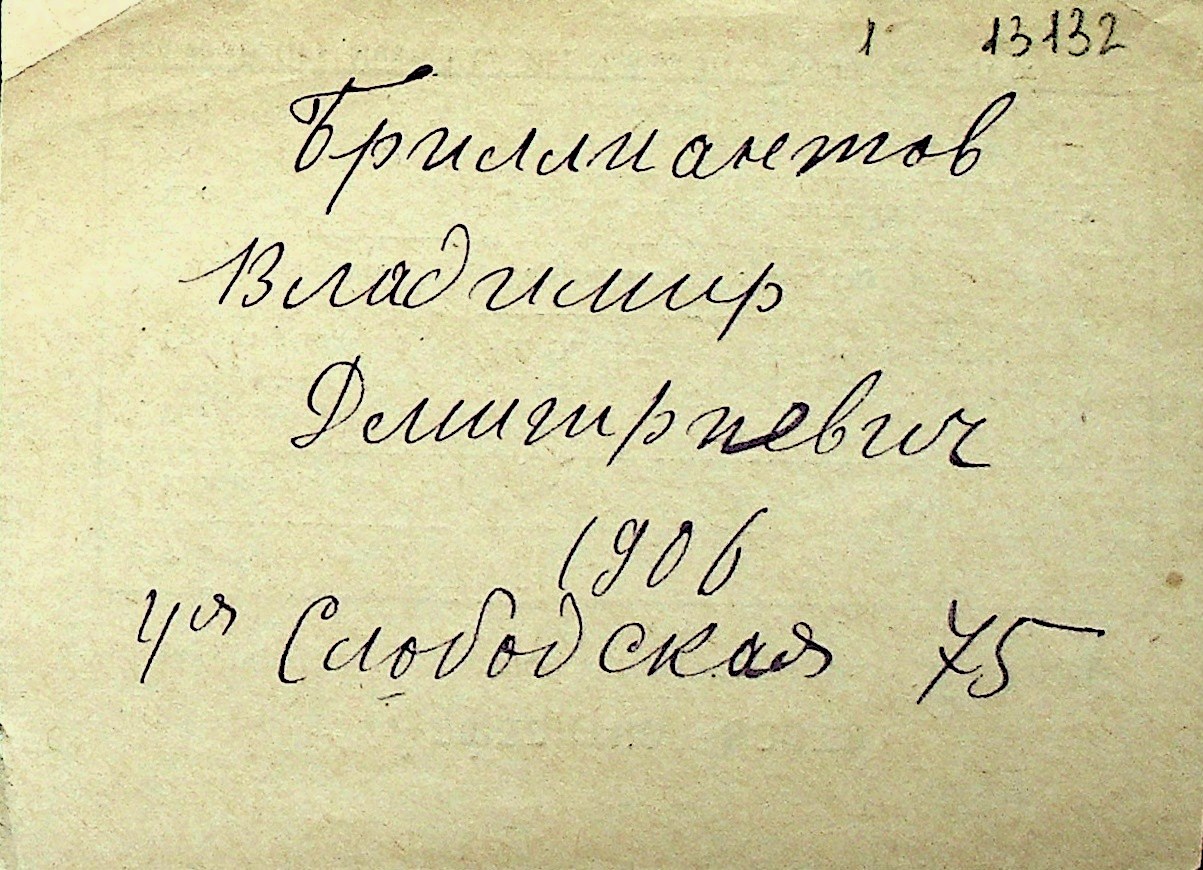 1 13132
Бриллиантов
Владимир
Дмитриевич
1906
4ая Слободская 75